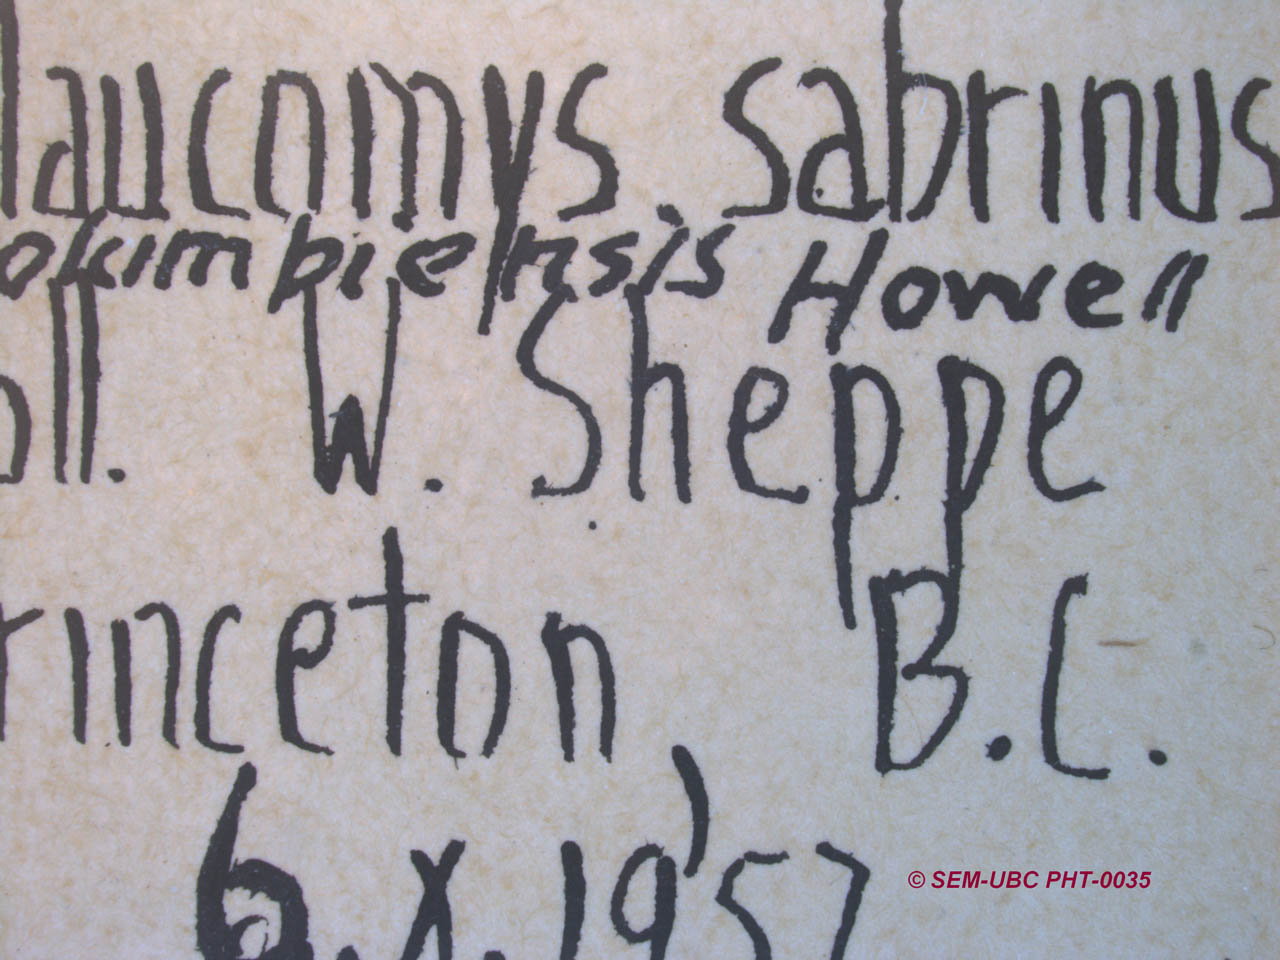 laucomys sabrinus
olumbiensis Howell
oll. W. Sheppe
rinceton, B.C.
6.X.1957
© SEM-UBC PHT-0035